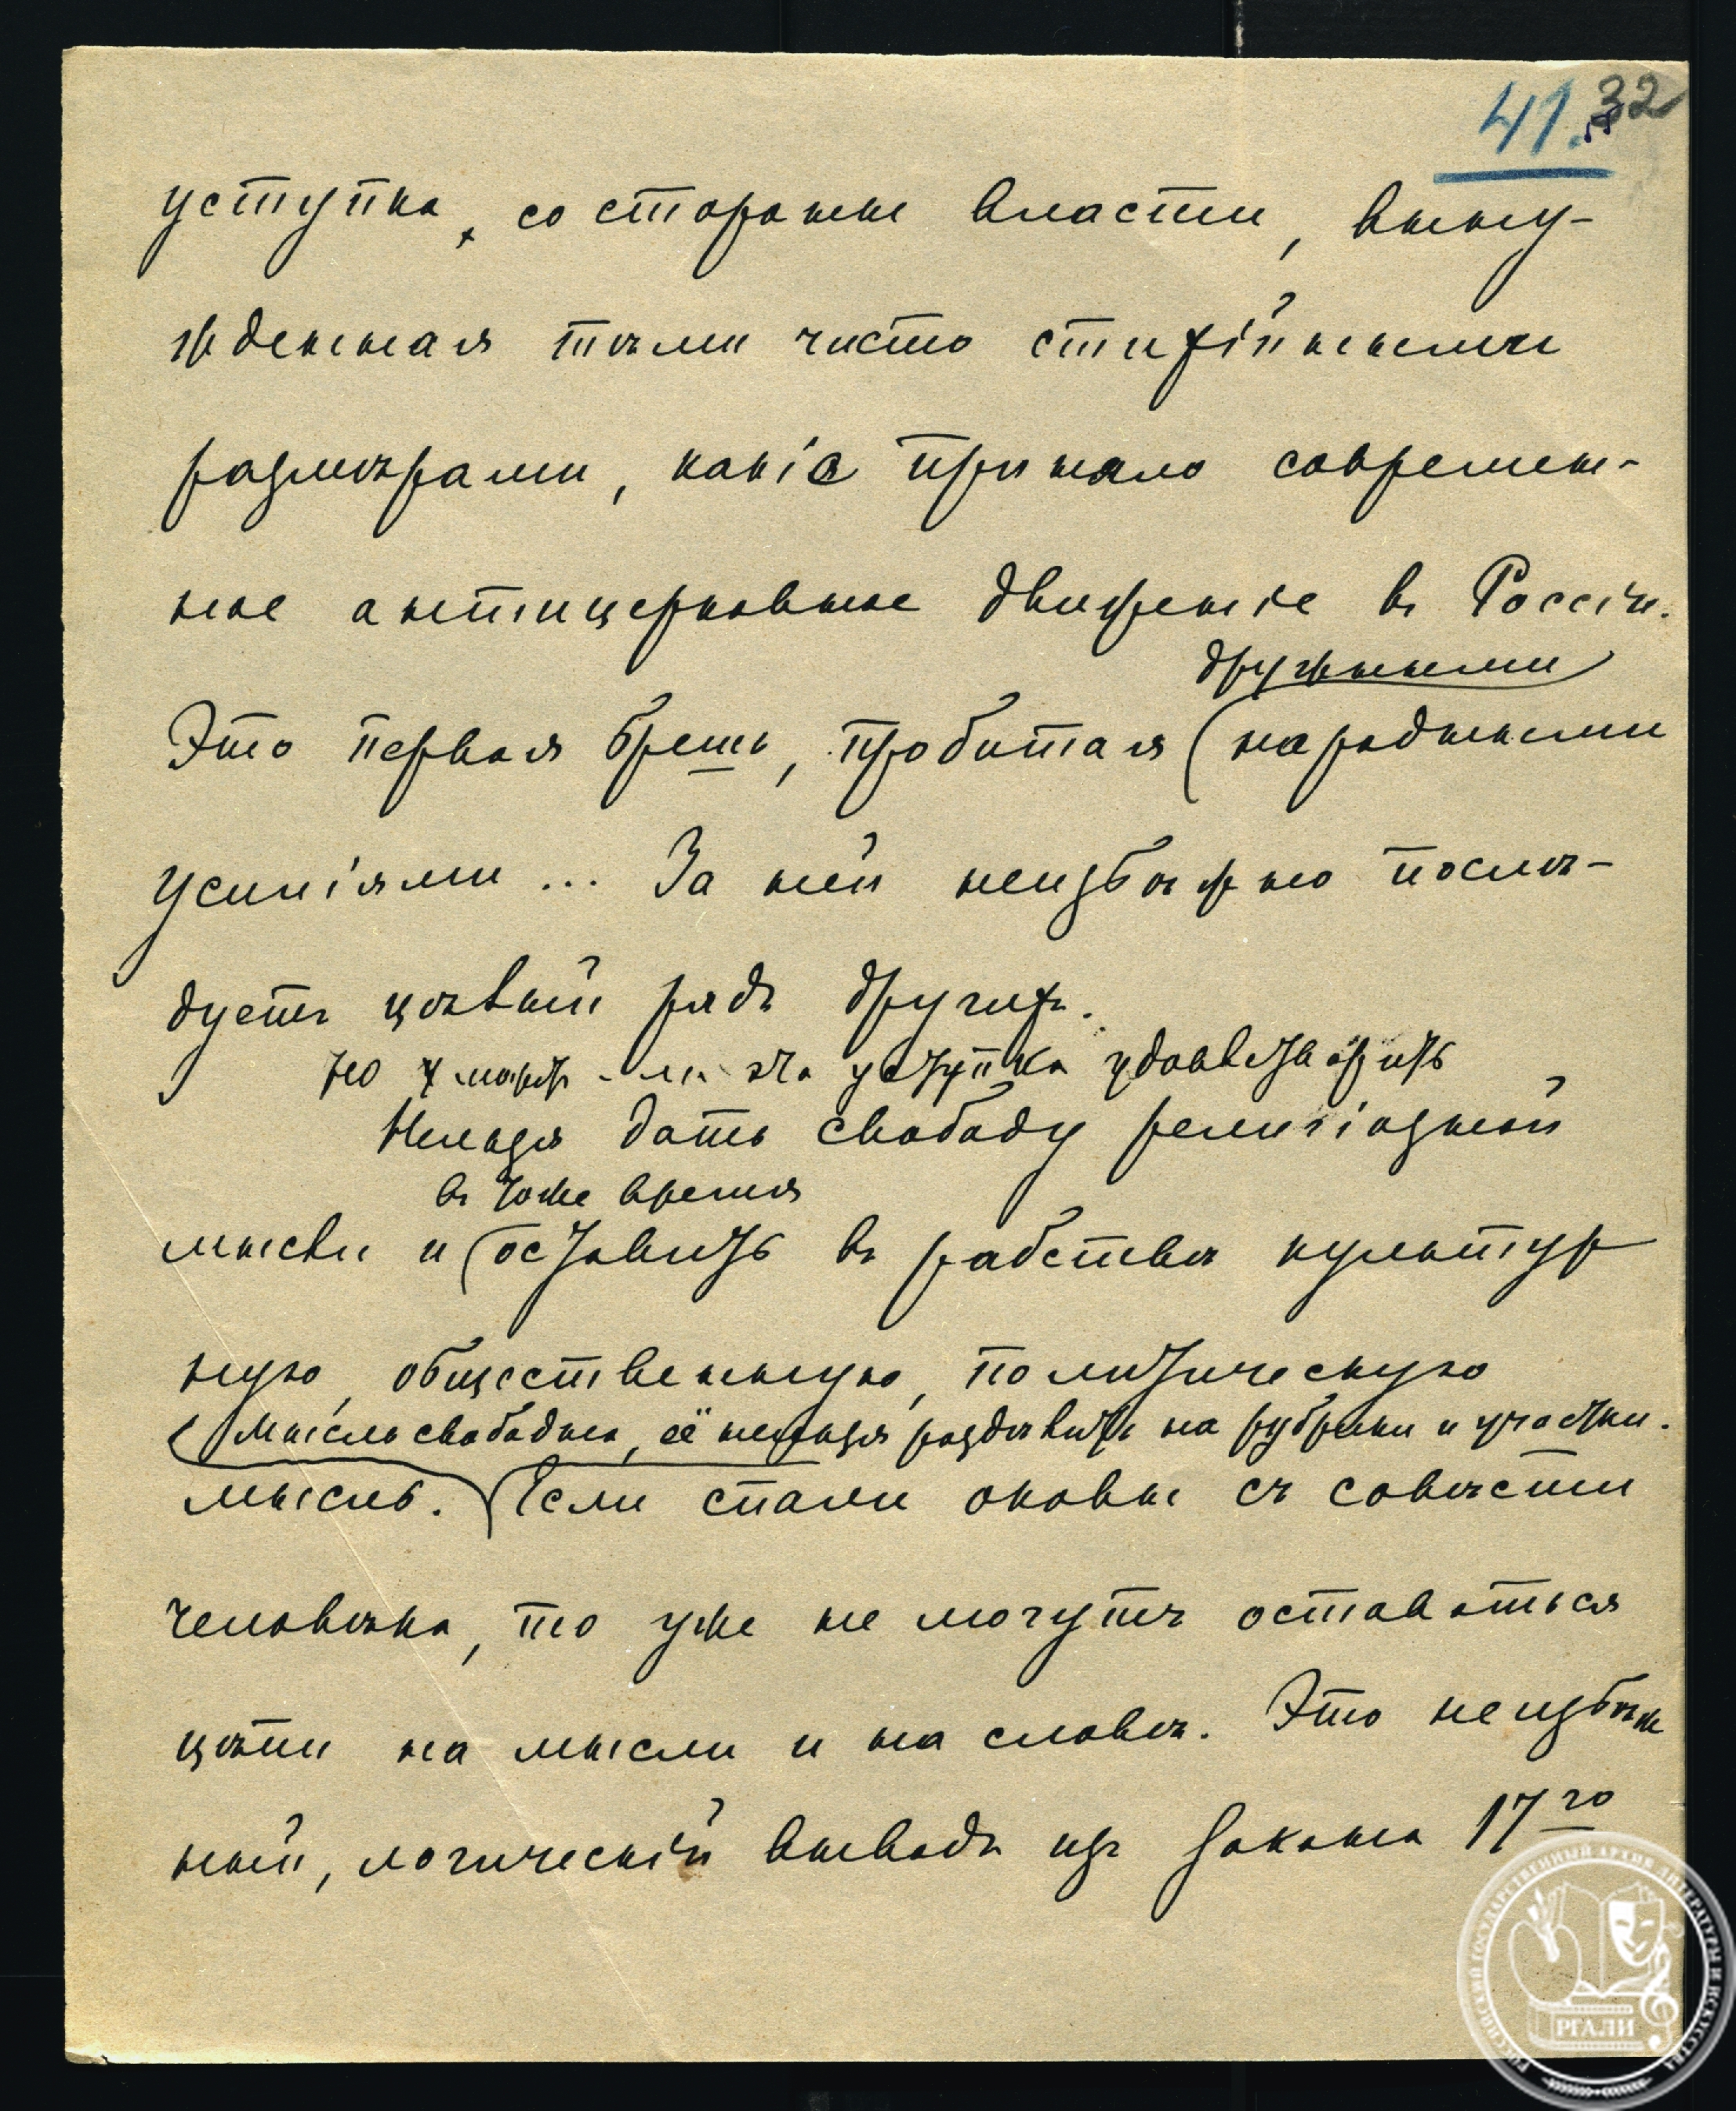 41. 32
уступка, со стороны власти, выну-
жденная тѣми чисто стихійными
размѣрами, какія приняло современ-
ное антицерковное движеніе въ Россіи.
дружными
Это первая брешь, пробитая народными
усиліями ... За ней неизбѣжно послѣ-
дуетъ цѣлый рядъ другихъ.
Но эта уступка удовлетворитъ
Нельзя дать свободу религіозной
въ тоже время
мысли и оставить въ рабствѣ культур
ную, общественную, политическую
Мысль свободна, её нельзя раздѣлить на рубрики и участки.
мысль. Если спали оковы съ совѣсти
человѣка, то уже не могутъ оставаться
цѣпи на мысли и на словѣ. Это неизбѣж
ный, логическій выводъ изъ закона 17го
РОССИЙСКИЙ ГОСУДАРСТВЕННЫЙ АРХИВ ЛИТЕРАТУРЫ И ИСКУССТВА
РГАЛИ